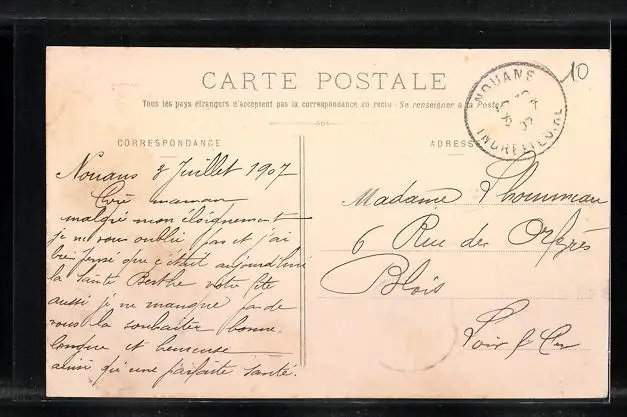 CARTE POSTALE
Tous les pays étrangers n'acceptent pas la correspondance au recto - Se renseigner à la Poste
CORRESPONDANCE
Nouans 3 Juillet 1907
Chère maman
malgré mon éloignement
je ne vous oublie pas et j'ai
bien pensé que c'était aujourd'hui
la Sainte Berthe votre fête
aussi je ne manque pas de
vous la souhaiter bonne
longue et heureuse
ainsi qu'une parfaite santé.
ADRESSE
Madame Thommeau
6 Rue des Orfèvres
Blois
Loir & Cher
NOUANS
07
INDRE ET LOIRE
10